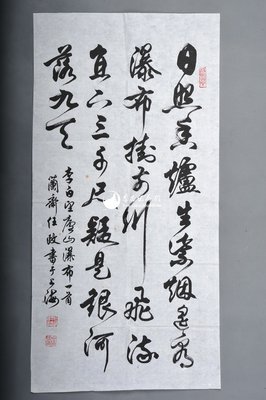 日照香爐生紫烟遥看
瀑布掛前川飛流
直下三千尺疑是銀河
落九天
李白望廬山瀑布一首
蘭齋任政書于上海